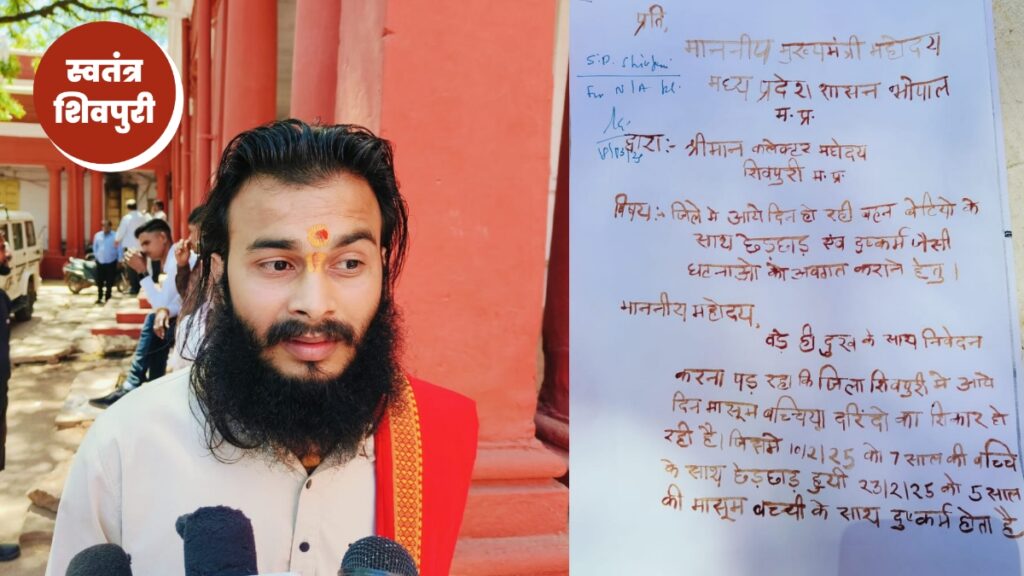 स्वतंत्र
शिवपुरी
प्रति,
माननीय मुख्यमंत्री महोदय
S.P. Shivpuri
मध्य प्रदेश शासन भोपाल
For N/A pl.
म. प्र.
द्वारा:- श्रीमान कलेक्टर महोदय
शिवपुरी म. प्र
विषय:- जिले मे आये दिन हो रही बहन बेटियो के
साथ छेड़छाड़ एंव दुष्कर्म जैसी
घटनाओ को अवगत कराने हेतु।
माननीय महोदय,
बड़े ही दुख के साथ निवेदन
करना पड़ रहा कि जिला शिवपुरी मे आये
दिन मासूम बच्चिया दरिंदो का शिकार हो
रही है। जिसमे 10/2/25 को 7 साल की बच्चि
के साथ छेड़छाड़ हुयी 23/2/25 को 5 साल
की मासूम बच्ची के साथ दुष्कर्म होता है